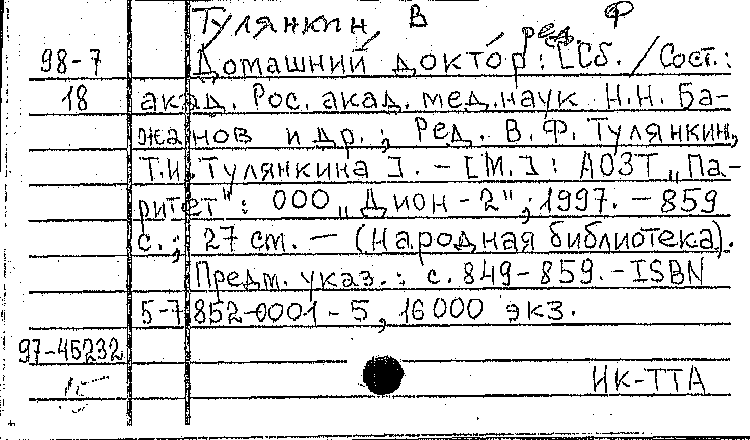 Тулянкин, В. Ф
ред.
98-7 Домашний доктор: [Сб. / Сост.:
18 акад. Рос. акад. мед. наук Н.Н. Ба-
жанов и др.; Ред. В.Ф. Тулянкин,
Т.И. Тулянкина]. - [М.]: АОЗТ „Па-
ритет": ООО „Дион-2", 1997. - 859
с.; 27 см. - (Народная библиотека).
Предм. указ.: с. 849-859. - ISBN
5-7852-0001-5, 16000 экз.
97-45232
15 НК-ТТА